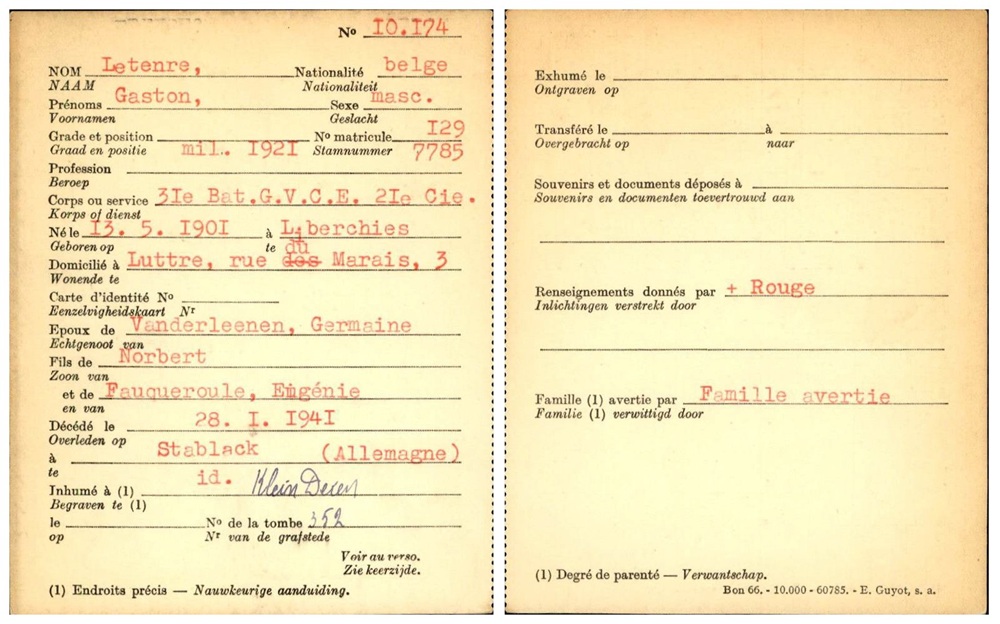 Nº 10.174
NOM Letenre, Nationalité belge
NAAM Nationaliteit
Prénoms Gaston, Sexe masc.
Voornamen Geslacht
Grade et position Nº matricule 129
Graad en positie mil. 1921 Stamnummer 7785
Profession
Beroep
Corps ou service 31e Bat.G.V.C.E. 21e Cie.
Korps of dienst
Né le 13. 5. 1901 à Liberchies
Geboren op te du
Domicilié à Luttre, rue des Marais, 3
Wonende te
Carte d'identité Nº
Eenzelvigheidskaart Nr
Epoux de Vanderleenen, Germaine
Echtgenoot van
Fils de Norbert
Zoon van
et de Fauqueroule, Eugénie
en van
Décédé le 28. I. 1941
Overleden op
à Stablack (Allemagne)
te
Inhumé à (1) id. Klein Dexen
Begraven te (1)
le Nº de la tombe 352
op Nr van de grafstede
Voir au verso.
Zie keerzijde.
(1) Endroits précis — Nauwkeurige aanduiding.
Exhumé le
Ontgraven op
Transféré le à
Overgebracht op naar
Souvenirs et documents déposés à
Souvenirs en documenten toevertrouwd aan
Renseignements donnés par + Rouge
Inlichtingen verstrekt door
Famille (1) avertie par Famille avertie
Familie (1) verwittigd door
(1) Degré de parenté — Verwantschap.
Bon 66. - 10.000 - 60785. - E. Guyot, s. a.